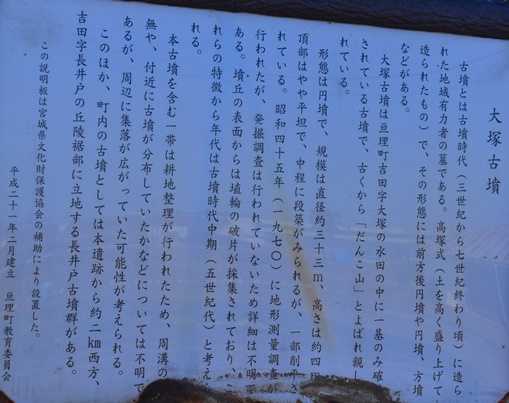 大塚古墳
古墳とは古墳時代（三世紀から七世紀終わり頃）に造ら
れた地域有力者の墓である。高塚式（土を高く盛り上げて
造られたもの）で、その形態には前方後円墳や円墳、方墳
などがある。
大塚古墳は亘理町吉田字大塚の水田の中に一基のみ確
されている古墳で、古くから「だんご山」とよばれ親し
れている。
形態は円墳で、規模は直径約三十三ｍ、高さは約四
頂部はやや平坦で、中程に段築がみられるが、一部削平さ
れている。昭和四十五年（一九七〇）に地形測量調査が
行われたが、発掘調査は行われていないため詳細は不明
ある。墳丘の表面からは埴輪の破片が採集されており、こ
れらの特徴から年代は古墳時代中期（五世紀代）と考え
れる。
本古墳を含む一帯は耕地整理が行われたため、周溝の
無や、付近に古墳が分布していたかなどについては不明で
あるが、周辺に集落が広がっていた可能性が考えられる。
このほか、町内の古墳としては本遺跡から約二㎞西方、
吉田字長井戸の丘陵裾部に立地する長井戸古墳群がある。
この説明板は宮城県文化財保護協会の補助により設置した。
平成二十一年二月建立　亘理町教育委員会